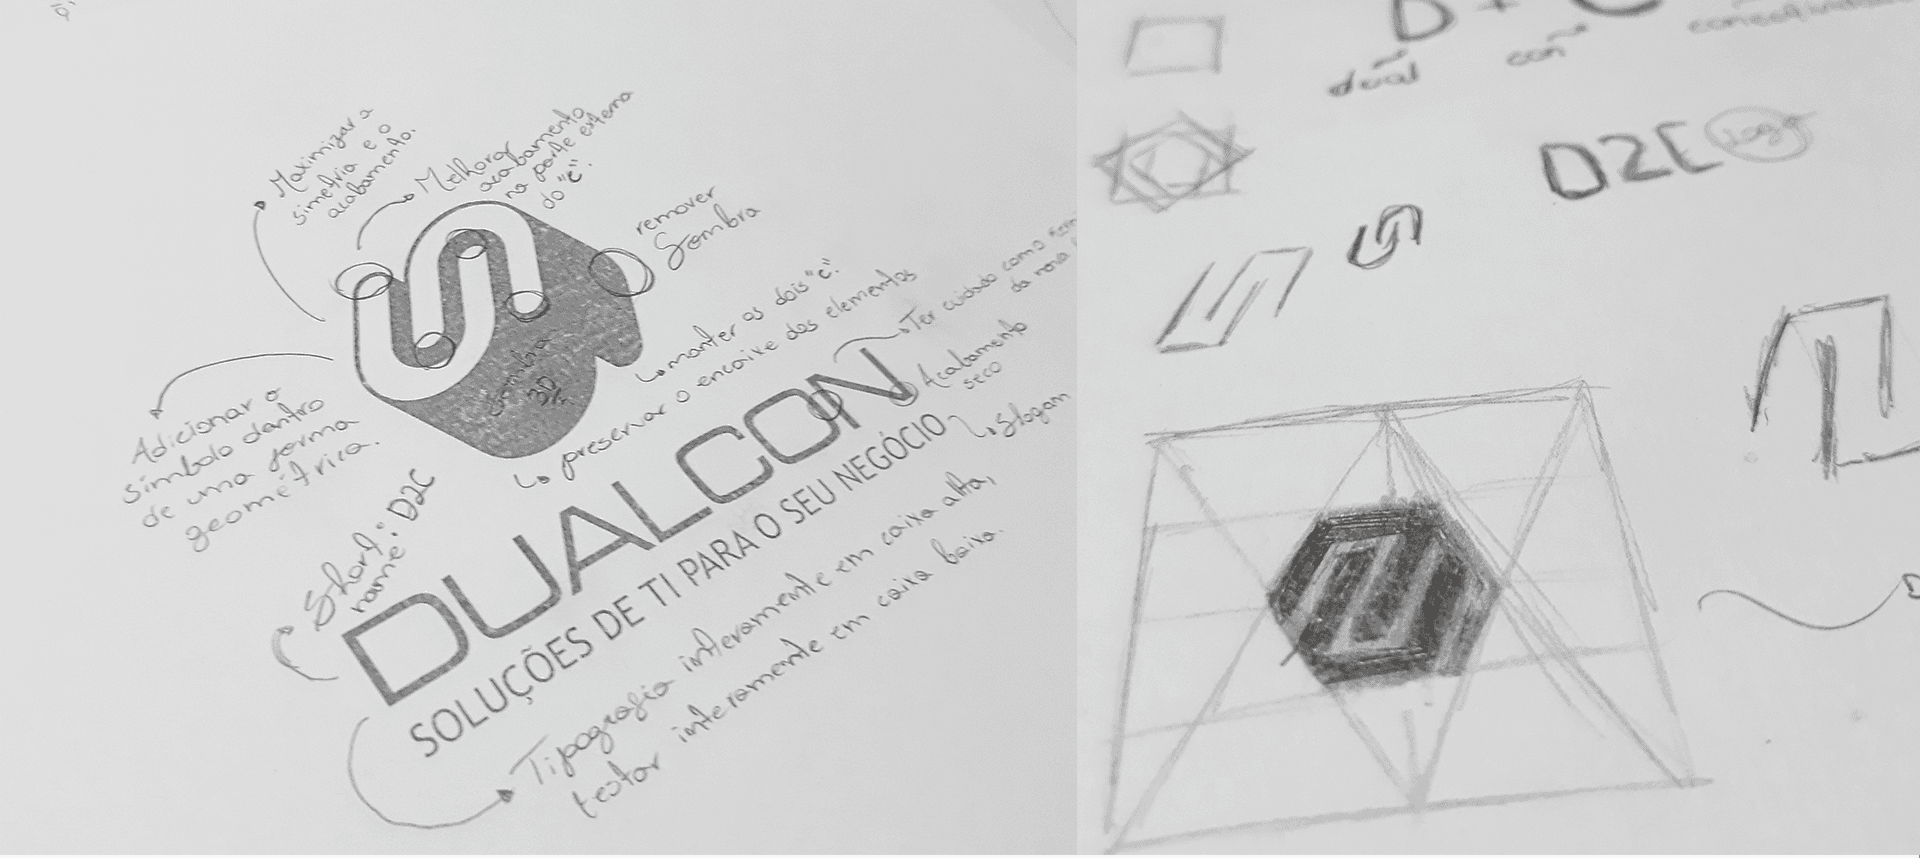 Maximizar a
simetria e o
acabamento.
Melhorar
acabamento
na parte externa
do "c".
remover
Sombra
Sombra
3D
manter os dois "c".
preservar o encaixe dos elementos
Ter cuidado com o
da nova
Acabamento
seco
Slogam
Adicionar o
símbolo dentro
de uma forma
geométrica.
"Short
name": D2C
DUALCON
SOLUÇÕES DE TI PARA O SEU NEGÓCIO
Tipografia inteiramente em caixa alta,
testar inteiramente em caixa baixa.
D + C
dual
con
D2C
logo